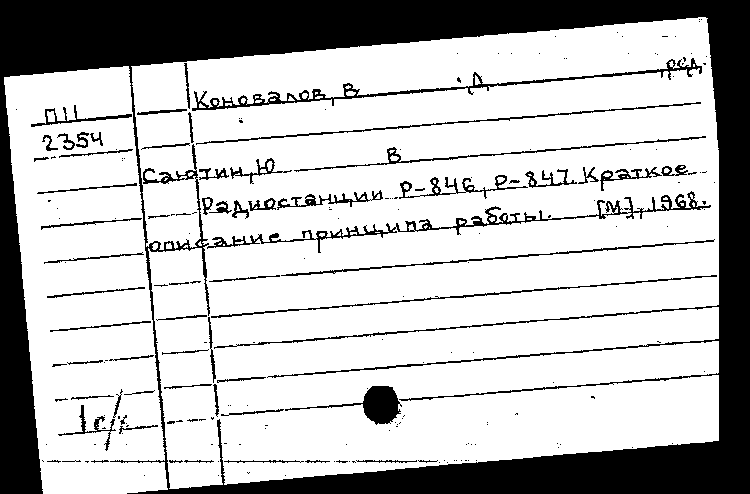 П11 Коновалов, В Д ,ред.
2354
Саютин, Ю В
Радиостанции Р-846, Р-847. Краткое
описание принципа работы. [М], 1968.
1с/х